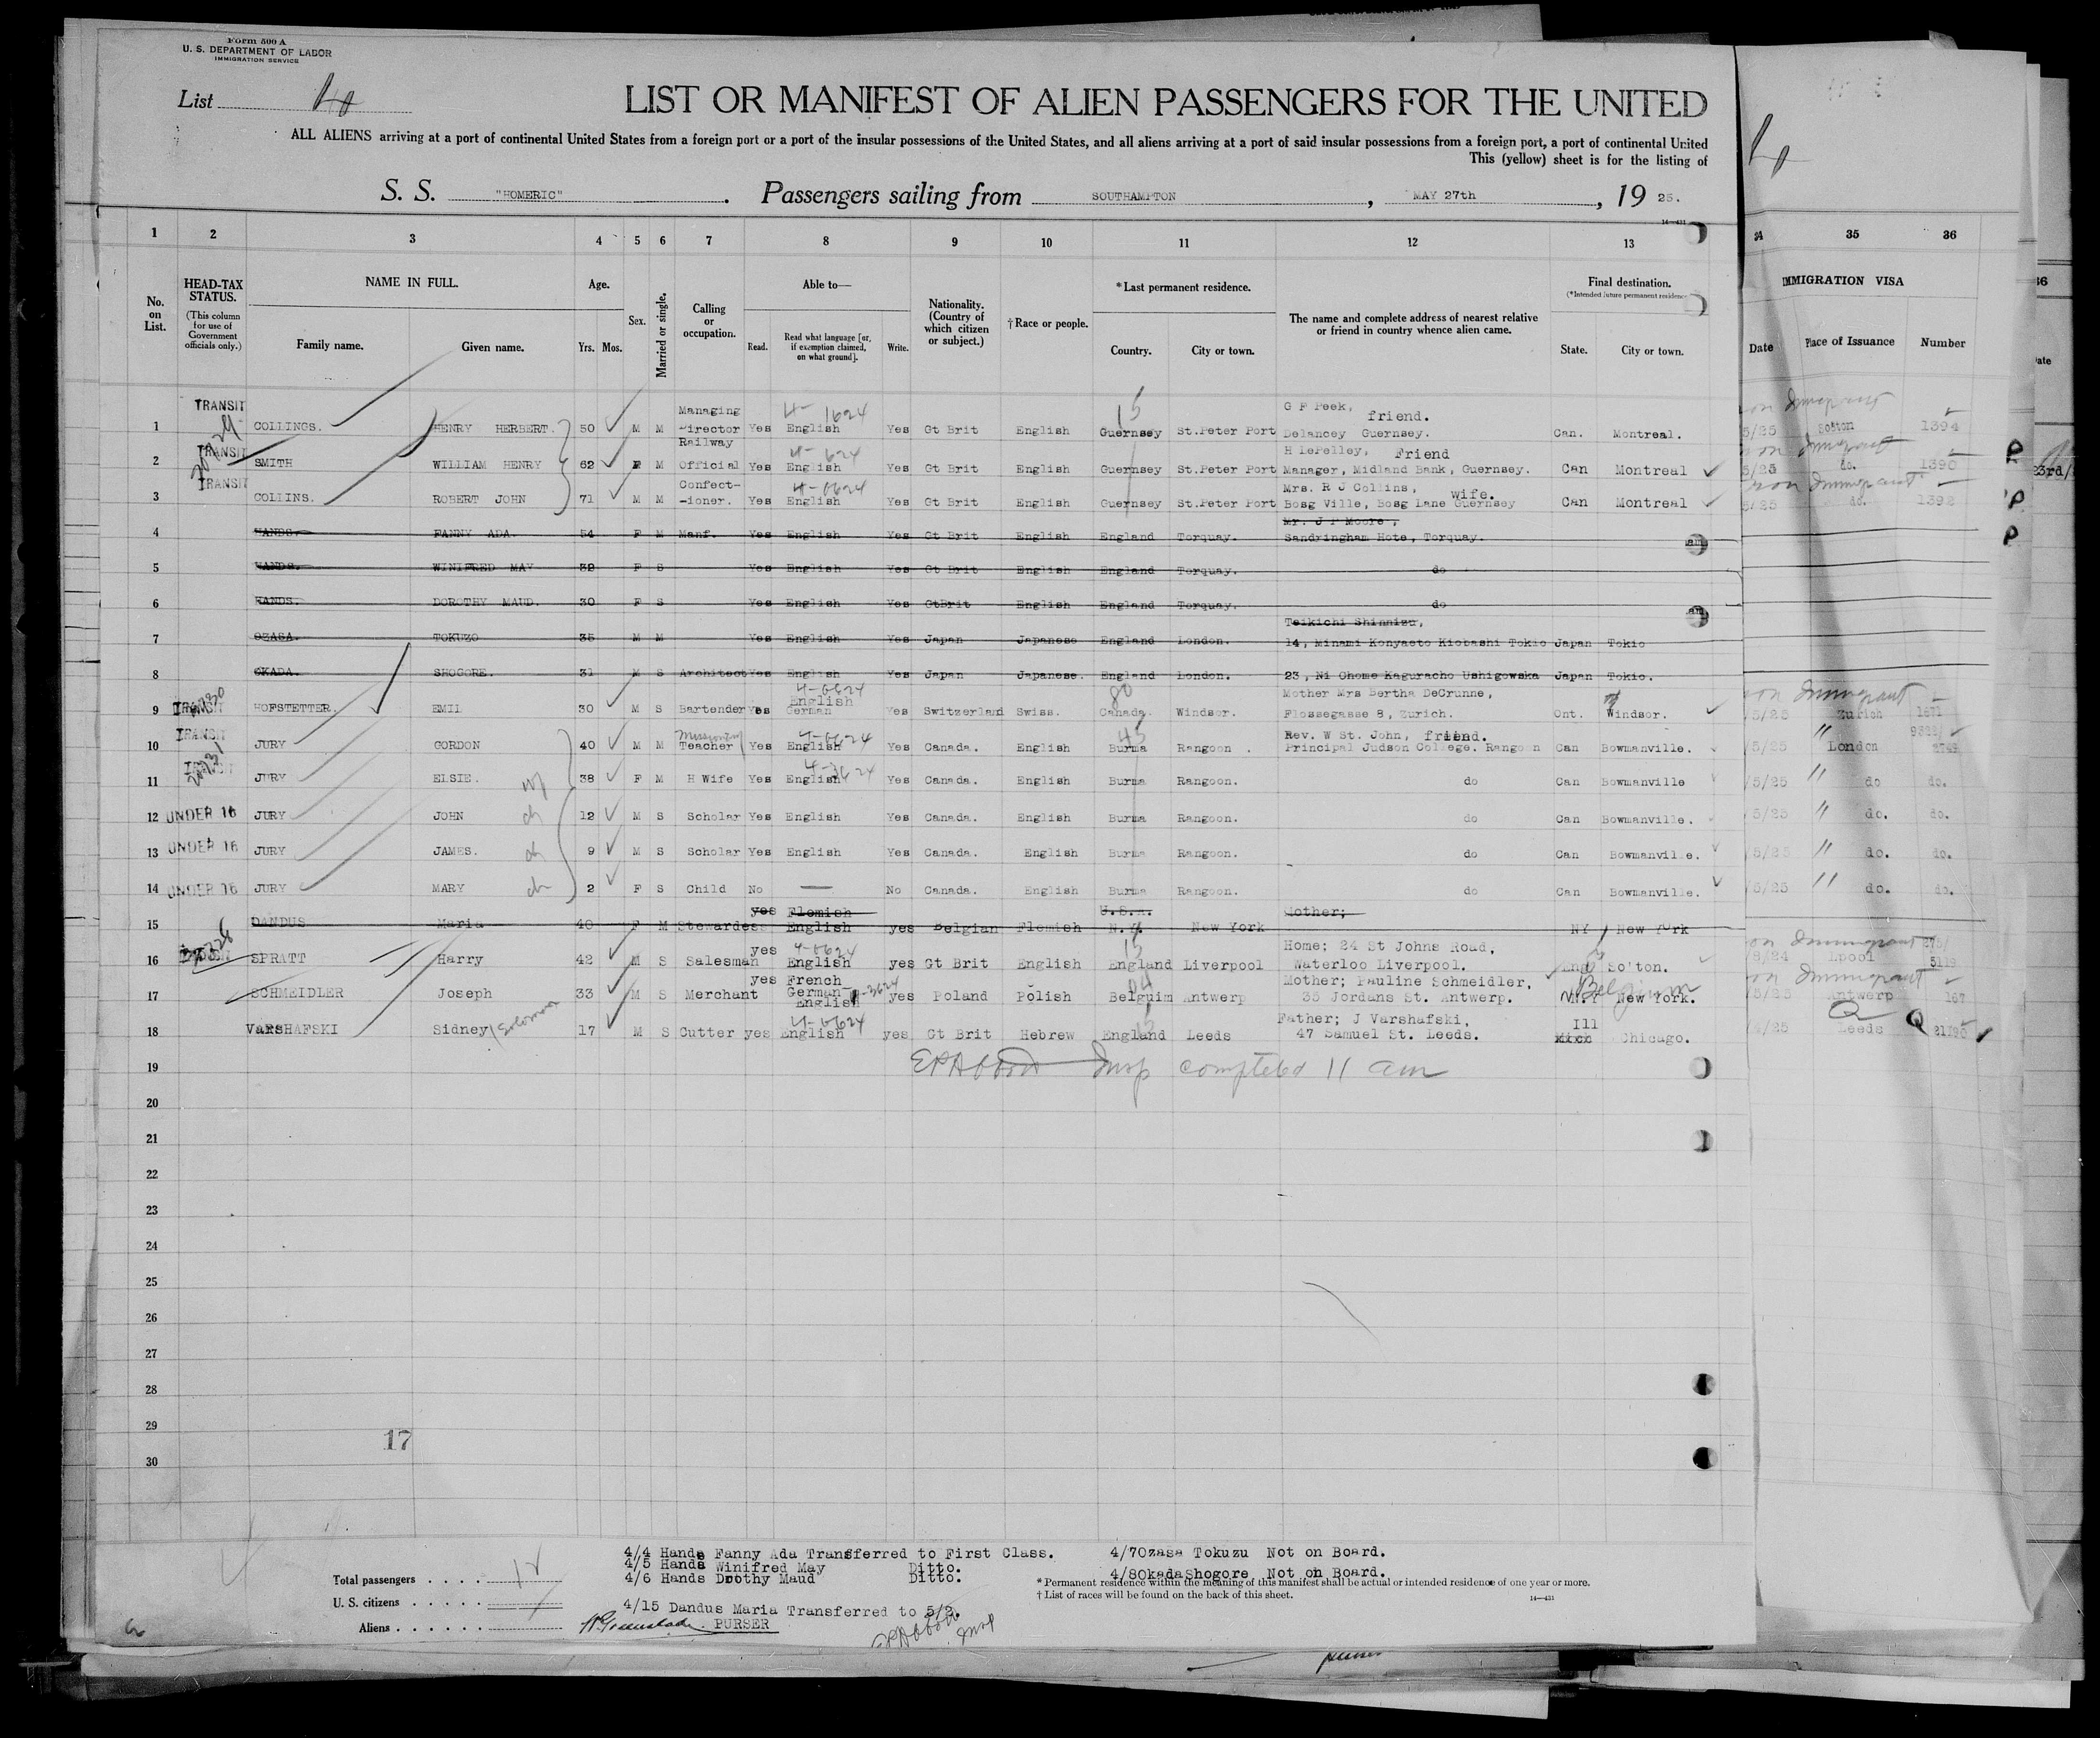 Form 500 A
U. S. DEPARTMENT OF LABOR
IMMIGRATION SERVICE
List
LIST OR MANIFEST OF ALIEN PASSENGERS FOR THE UNITED
ALL ALIENS arriving at a port of continental United States from a foreign port or a port of the insular possessions of the United States, and all aliens arriving at a port of said insular possessions from a foreign port, a port of continental United
This (yellow) sheet is for the listing of
S. S. "HOMERIC". Passengers sailing from SOUTHAMPTON, MAY 27th, 19 25.
14—431
1 2 3 4 5 6 7 8 9 10 11 12 13 34 35 36
No. on List.
HEAD-TAX STATUS.
(This column for use of Government officials only.)
NAME IN FULL.
Family name. Given name.
Age.
Yrs. Mos.
Sex.
Married or single.
Calling or occupation.
Able to—
Read. Read what language [or, if exemption claimed, on what ground]. Write.
Nationality. (Country of which citizen or subject.)
†Race or people.
*Last permanent residence.
Country. City or town.
The name and complete address of nearest relative or friend in country whence alien came.
Final destination.
(*Intended future permanent residence
State. City or town.
IMMIGRATION VISA
Date Place of Issuance Number
1 TRANSIT COLLINGS. HENRY HERBERT. 50 M M Managing Director Yes English Yes Gt Brit English Guernsey St.Peter Port G F Peek, friend. Delancey Guernsey. Can. Montreal. 5/25 Boston 1394
2 TRANSIT SMITH WILLIAM HENRY 62 M Railway Official Yes English Yes Gt Brit English Guernsey St.Peter Port H LePelley, Friend Manager, Midland Bank, Guernsey. Can Montreal 5/25 do. 1390
3 TRANSIT COLLINS. ROBERT JOHN 71 M M Confect--ioner. Yes English Yes Gt Brit English Guernsey St.Peter Port Mrs. R J Collins, wife. Bosg Ville, Bosg Lane Guernsey Can Montreal 5/25 do. 1392
4 HANDS. FANNY ADA. 54 F M Manf. Yes English Yes Gt Brit English England Torquay. Mr. J P Moore, Sandringham Hote, Torquay.
5 HANDS. WINIFRED MAY 32 F S Yes English Yes Gt Brit English England Torquay. do
6 HANDS. DOROTHY MAUD. 30 F S Yes English Yes GtBrit English England Torquay. do
7 OZASA. TOKUZO 35 M M Yes English Yes Japan Japanese England London. Teikichi Shimmizu, 14, Minami Konyaeto Kiobashi Tokio Japan Tokio
8 OKADA. SHOGORE. 31 M S Architect Yes English Yes Japan Japanese. England London. 23, Ni Chome Kaguracho Ushigowska Japan Tokio.
9 TRANSIT HOFSTETTER. EMIL 30 M S Bartender Yes English German Yes Switzerland Swiss. Canada. Windsor. Mother Mrs Bertha DeCrunne, Flossegasse 8, Zurich. Ont. Windsor. 5/25 Zurich 1671
10 TRANSIT JURY GORDON 40 M M Missionary Teacher Yes English Yes Canada. English Burma Rangoon. Rev. W St. John, friend. Principal Judson College. Rangoon Can Bowmanville. 5/25 London 2749
11 TRANSIT JURY ELSIE. 38 F M H Wife Yes English Yes Canada. English Burma Rangoon. do Can Bowmanville 5/25 " do do.
12 UNDER 16 JURY JOHN 12 M S Scholar Yes English Yes Canada. English Burma Rangoon. do Can Bowmanville. 5/25 " do. do.
13 UNDER 16 JURY JAMES. 9 M S Scholar Yes English Yes Canada. English Burma Rangoon. do Can Bowmanville. 5/25 " do. do.
14 UNDER 16 JURY MARY 2 F S Child No — No Canada. English Burma Rangoon. do Can Bowmanville. 5/25 " do. do.
15 DANDUS Maria 40 F M Stewardess yes Flemish English yes Belgian Flemish U.S.A. N.Y. New York Mother; NY New York
16 SPRATT Harry 42 M S Salesman yes English yes Gt Brit English England Liverpool Home; 24 St Johns Road, Waterloo Liverpool. Eng So'ton. 8/24 Lpool 5119
17 SCHMEIDLER Joseph 33 M S Merchant yes French German English yes Poland Polish Belguim Antwerp Mother; Pauline Schmeidler, 35 Jordans St. Antwerp. N.Y. New York. Belgium 5/25 Antwerp 167
18 VARSHAFSKI Sidney Solomon 17 M S Cutter yes English yes Gt Brit Hebrew England Leeds Father; J Varshafski, 47 Samuel St. Leeds. Ill Chicago. 4/25 Leeds
19 Insp completed 11 am
20
21
22
23
24
25
26
27
28
29
30
17
4/4 Hands Fanny Ada Transferred to First Class.
4/5 Hands Winifred May Ditto.
4/6 Hands Drothy Maud Ditto.
4/15 Dandus Maria Transferred to 5/2.
PURSER
4/7Ozasa Tokuzu Not on Board.
4/8OkadaShogore Not on Board.
Total passengers
U. S. citizens
Aliens
* Permanent residence within the meaning of this manifest shall be actual or intended residence of one year or more.
† List of races will be found on the back of this sheet.
14—431